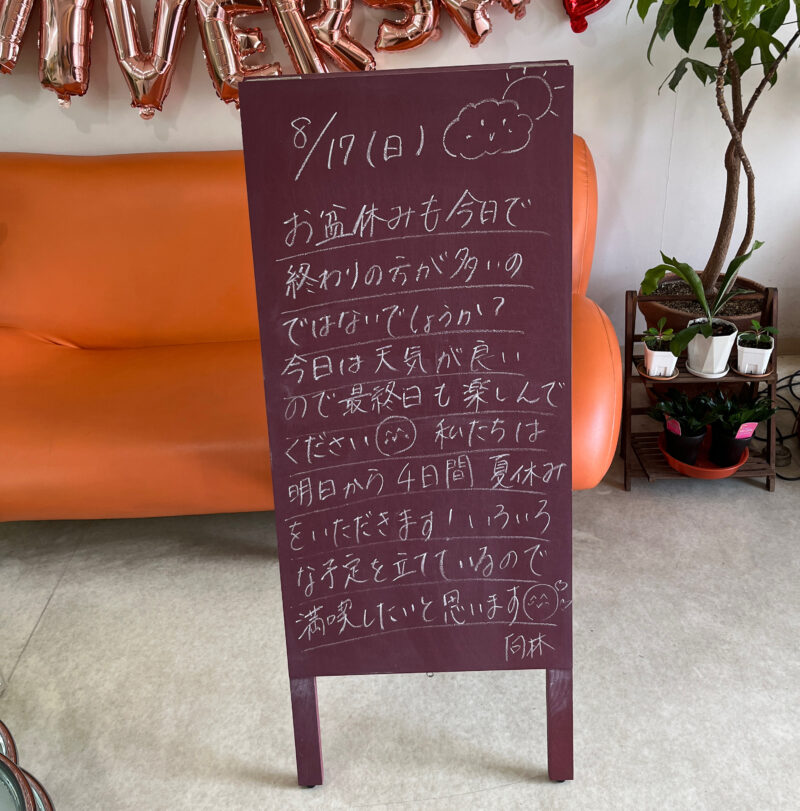 IVERSA
8/17(日)
お盆休みも今日で
終わりの方が多いの
ではないでしょうか?
今日は天気が良い
ので最終日も楽しんで
ください 私たちは
明日から4日間 夏休み
をいただきます!いろいろ
な予定を立てているので
満喫したいと思います
向林